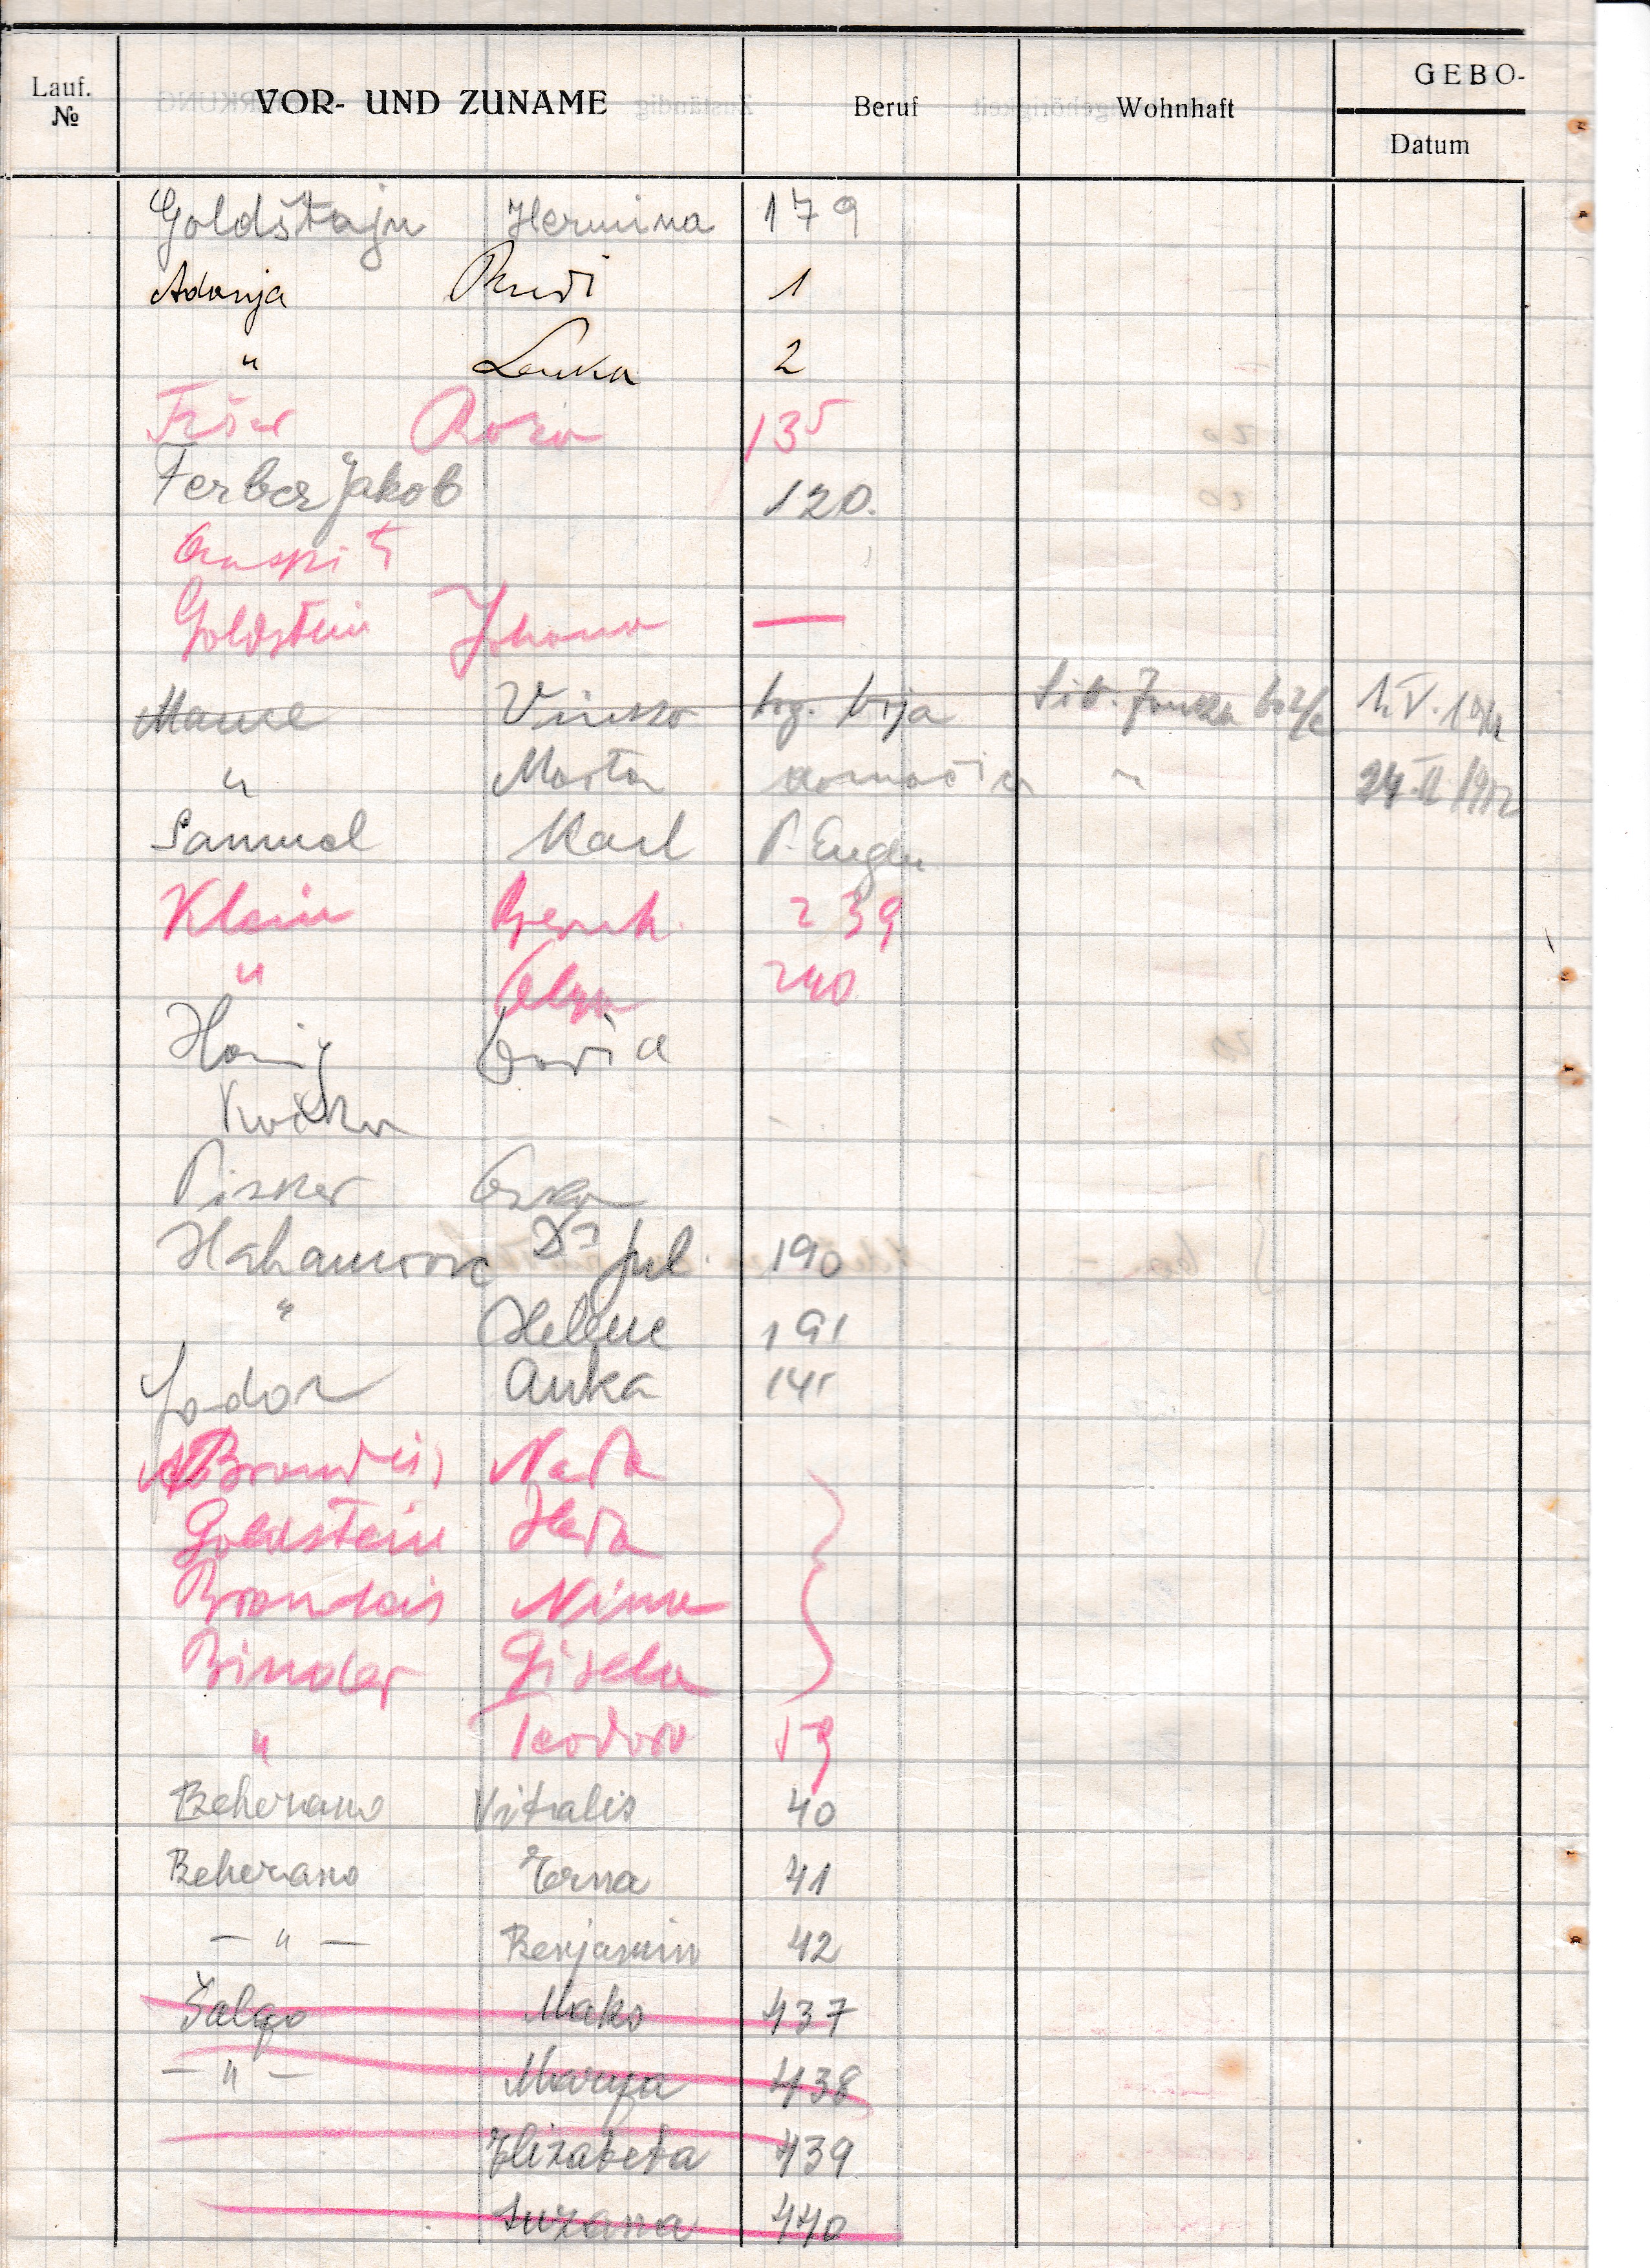 Lauf. № VOR- UND ZUNAME Beruf Wohnhaft GEBO-
Datum
Goldštajn Hermina 179
Adonja Rudi 1
" Lenka 2
Fišer Roza 135
Ferber Jakob 120.
Auspitz
Goldstein Johana —
Vinko trg. 1. V.
" Marta domaćica " 24. II 1912
Samuel Karl P. Eugen
Klein Bernh. 239
" Olga 240
Honig David
Pisker Oskar
Dr Jul. 190
" Helene 191
Fodor Anka 145
Brandeis Nada
Goldstein Heda
Brandeis Nina
Binder Gisela
" Teodor 59
Beherano Vitalis 40
Beherano Erna 41
— " — Benjamin 42
Salgo Mako 437
— " — Marija 438
Elizabeta 439
Suzana 440